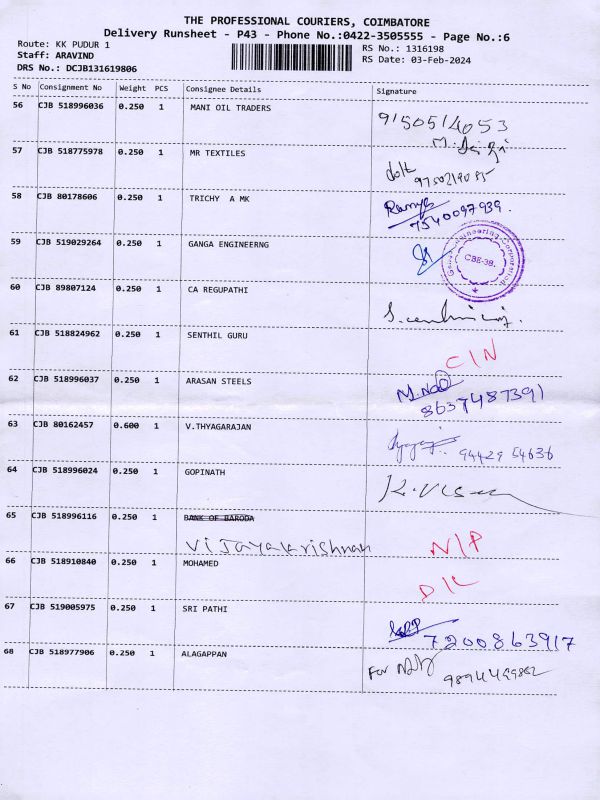 THE PROFESSIONAL COURIERS, COIMBATORE
Delivery Runsheet - P43 - Phone No.:0422-3505555 - Page No.:6
Route: KK PUDUR 1
RS No.: 1316198
Staff: ARAVIND
RS Date: 03-Feb-2024
DRS No.: DCJB131619806
S No Consignment No Weight PCS Consignee Details Signature
56 CJB 518996036 0.250 1 MANI OIL TRADERS
9150514053
57 CJB 518775978 0.250 1 MR TEXTILES
58 CJB 80178606 0.250 1 TRICHY A MK
Ramya
7540097939.
59 CJB 519029264 0.250 1 GANGA ENGINEERNG
CBE-38.
60 CJB 89807124 0.250 1 CA REGUPATHI
61 CJB 518824962 0.250 1 SENTHIL GURU
C/N
62 CJB 518996037 0.250 1 ARASAN STEELS
8637487391
63 CJB 80162457 0.600 1 V.THYAGARAJAN
94429 54636
64 CJB 518996024 0.250 1 GOPINATH
65 CJB 518996116 0.250 1 BANK OF BARODA
Vijayakrishnan N/P
66 CJB 518910840 0.250 1 MOHAMED
D/L
67 CJB 519005975 0.250 1 SRI PATHI
7200863917
68 CJB 518977906 0.250 1 ALAGAPPAN
For